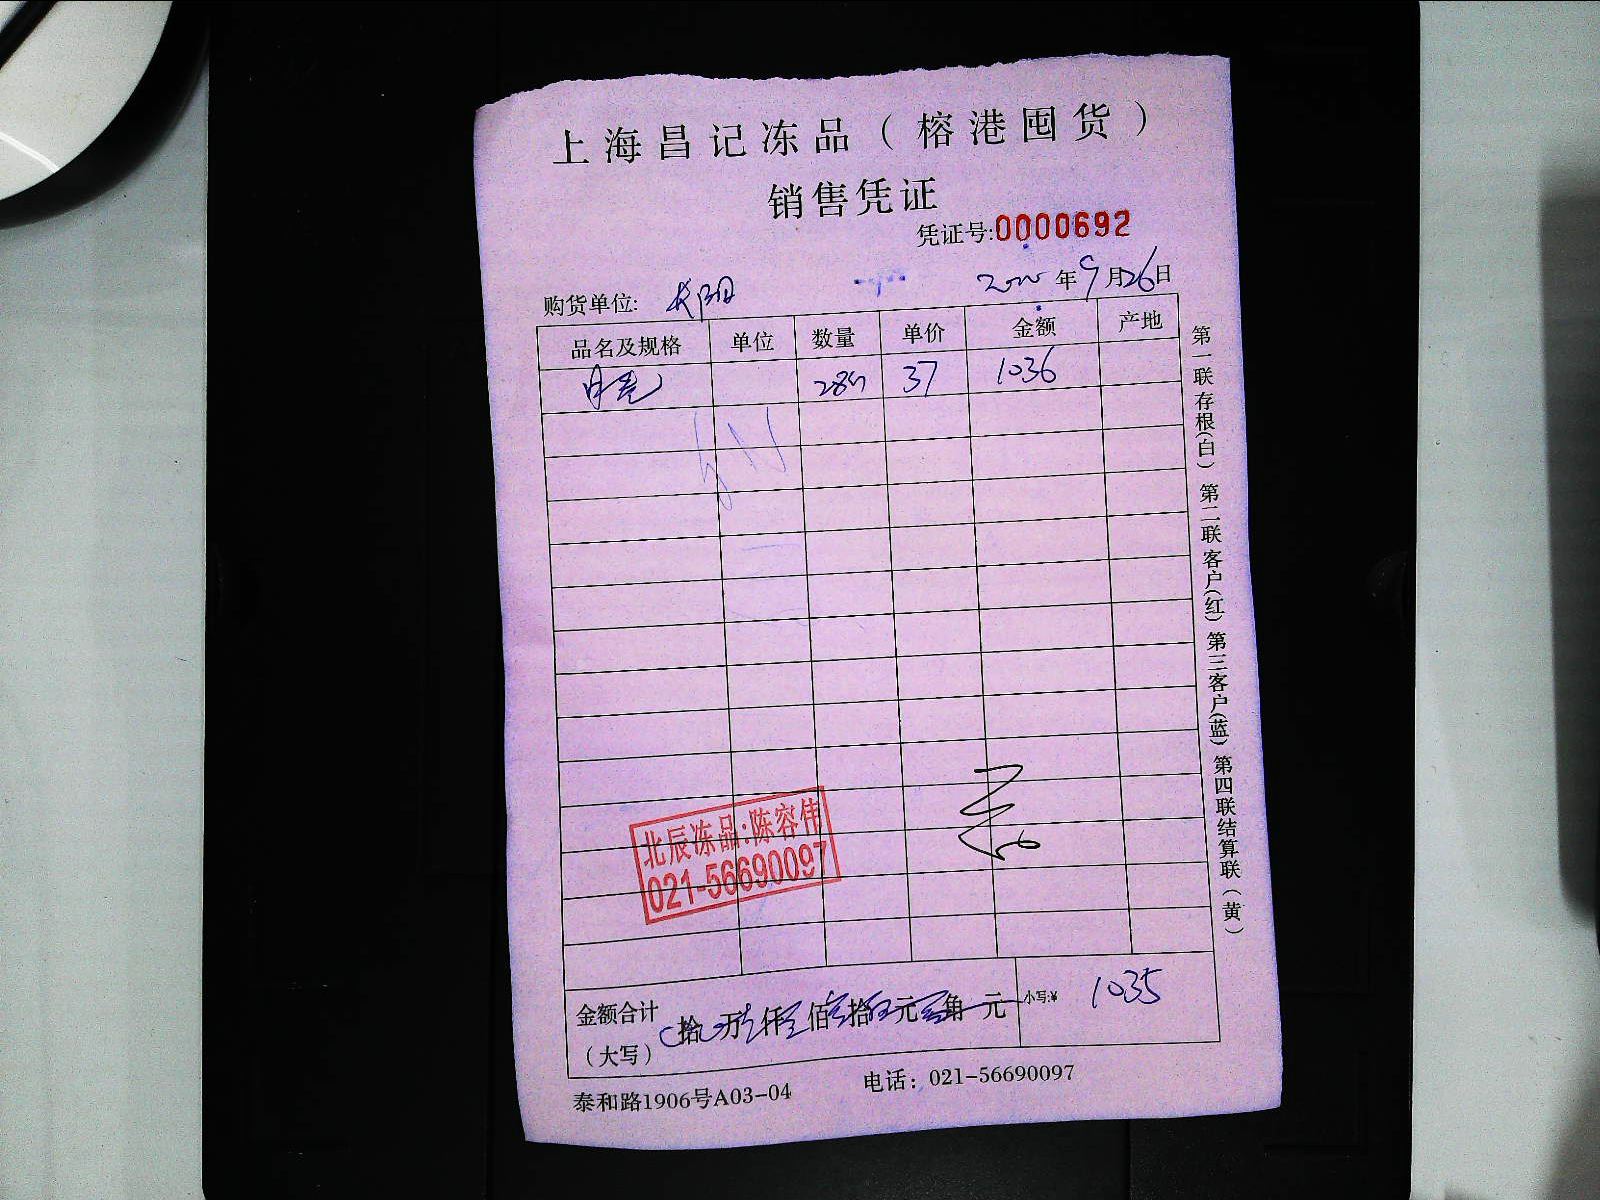 上海昌记冻品（榕港囤货）
销售凭证
凭证号:0000692
购货单位: 年9月26日
品名及规格 单位 数量 单价 金额 产地
37 1036
第一联存根(白) 第二联客户(红) 第三客户(蓝) 第四联结算联(黄)
北辰冻品:陈容伟
021-56690097
金额合计（大写） 拾 万 仟 佰 拾 元 角 元 小写:¥ 1035
泰和路1906号A03-04 电话：021-56690097